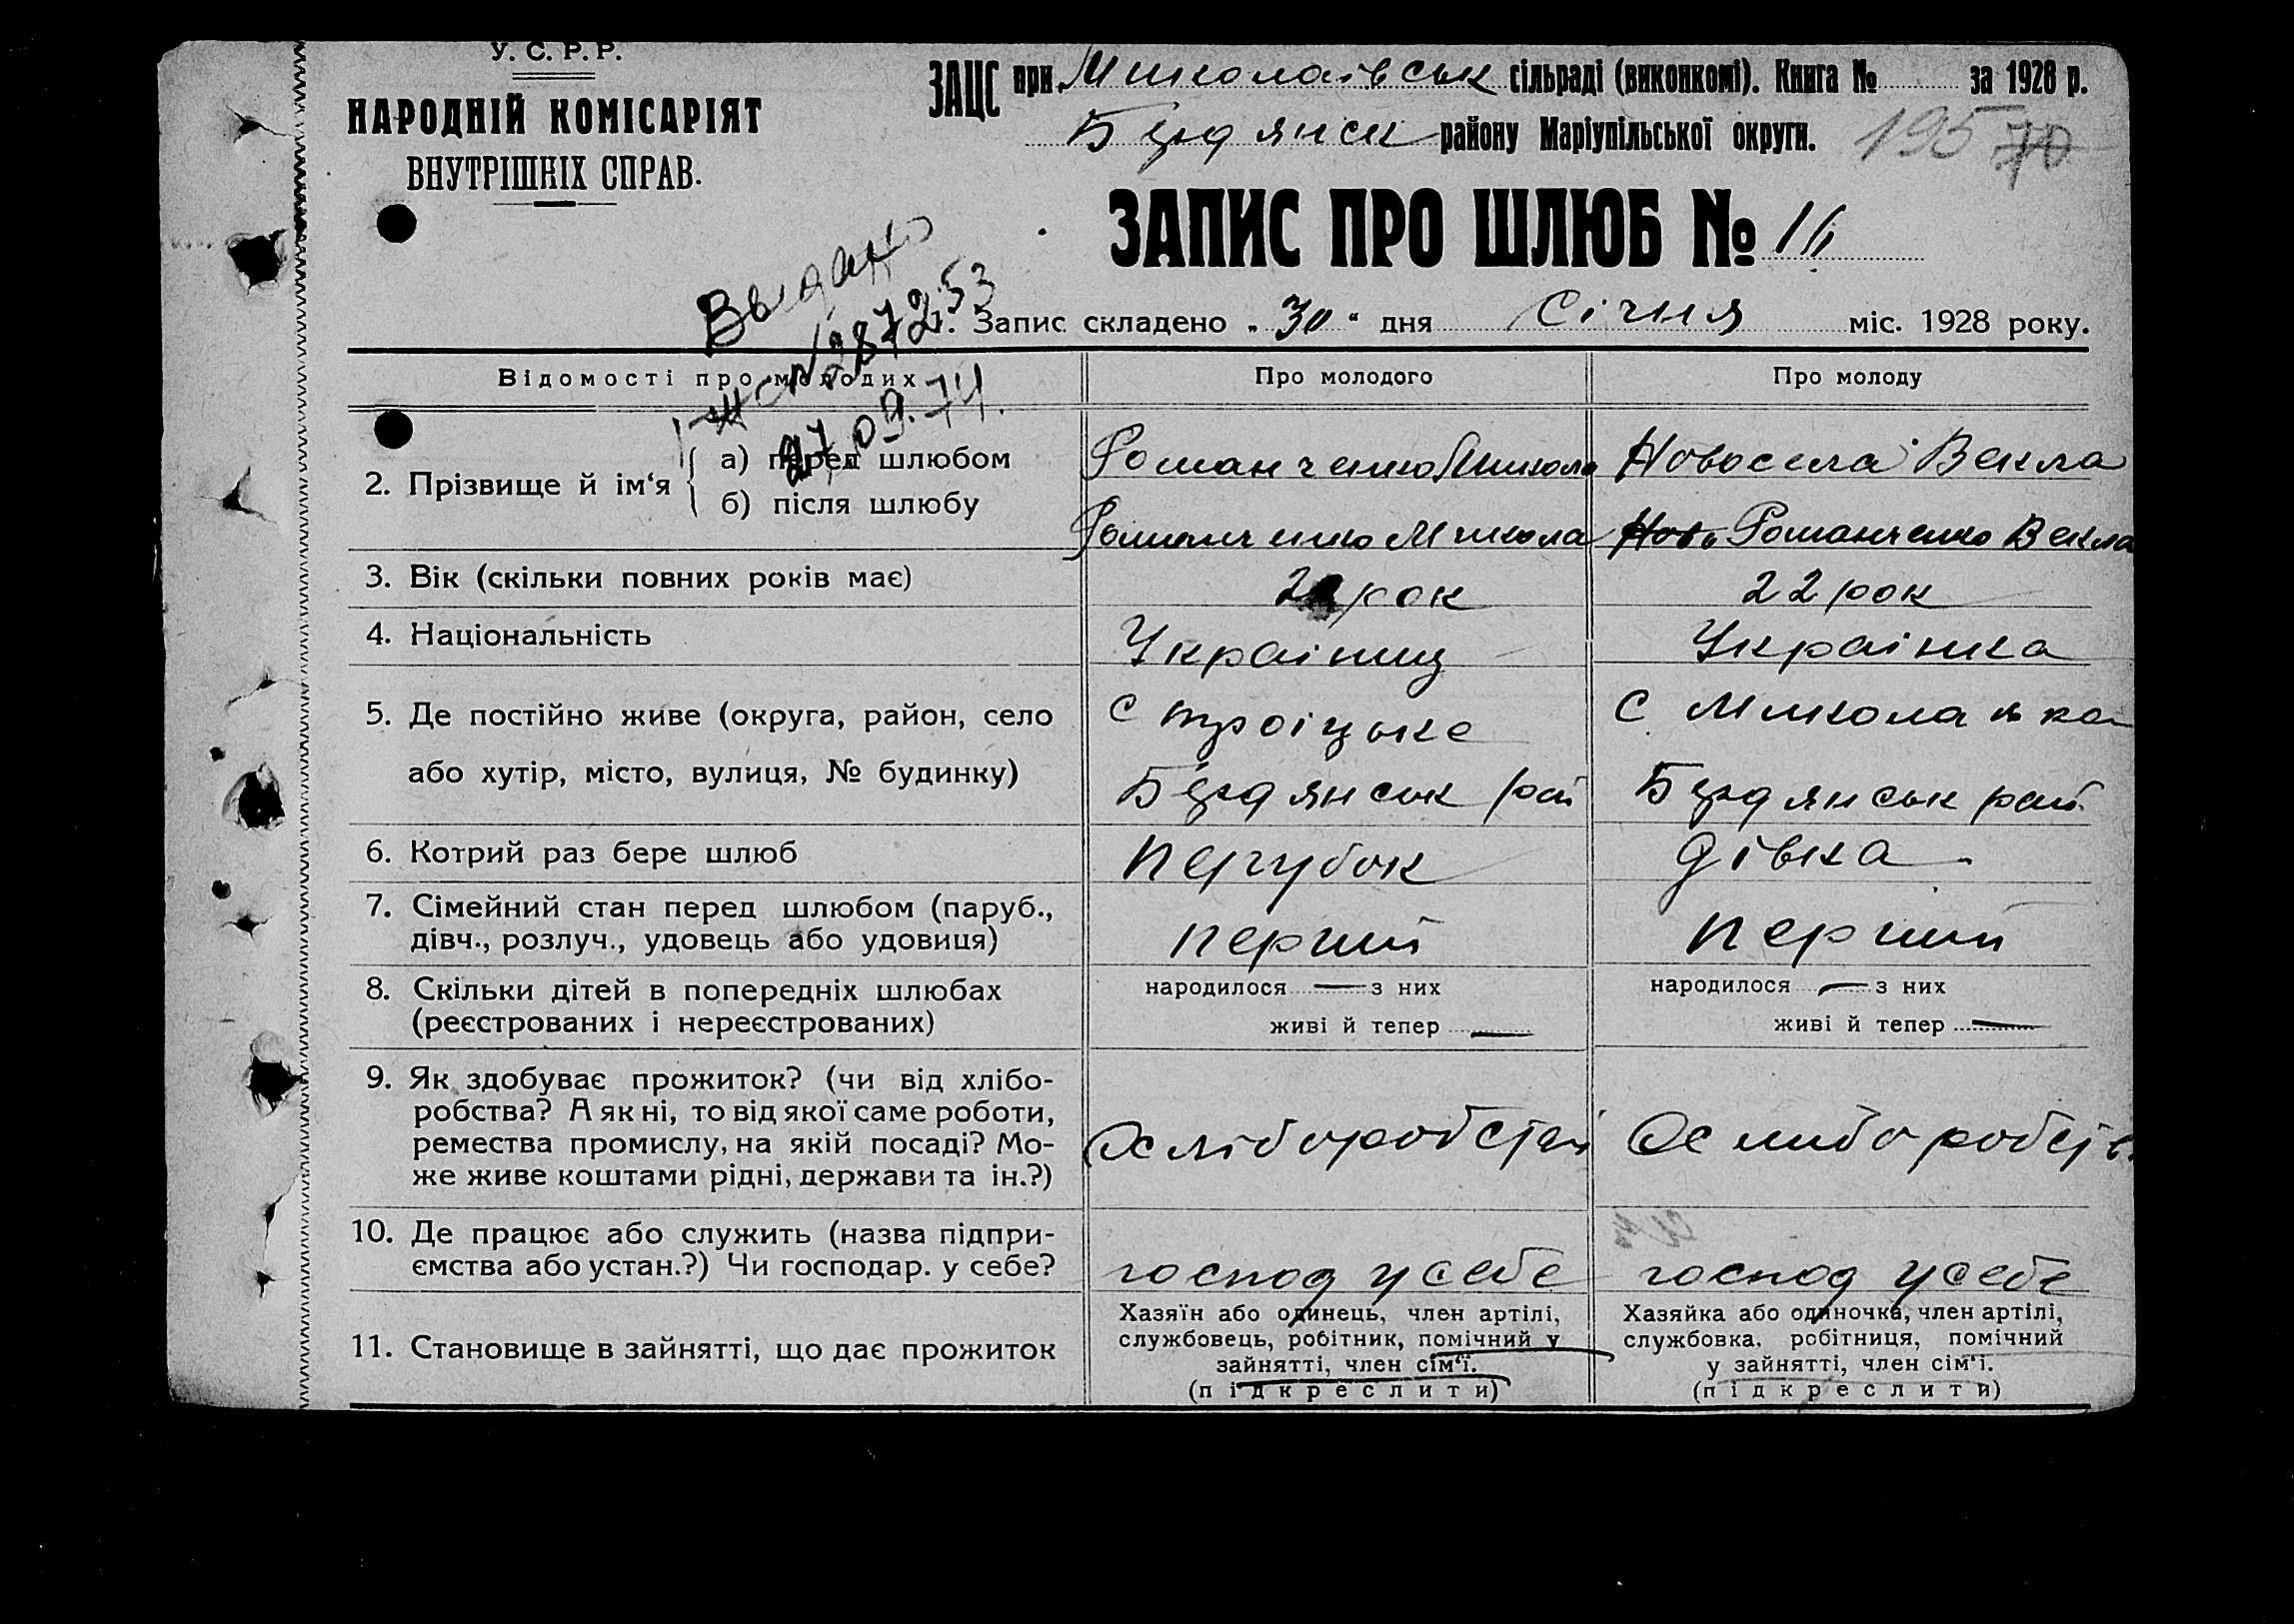 У. С. Р. Р.
НАРОДНІЙ КОМІСАРІЯТ
ВНУТРІШНІХ СПРАВ.
ЗАЦС при Миколаівськ сільраді (виконкомі). Книга № за 1928 р.
Бердянськ району Маріупільської округи.
195 70
ЗАПИС ПРО ШЛЮБ № 16
Выдано
287253
27.09.74.
Запис складено „30“ дня Січня міс. 1928 року.
Відомості про молодих
Про молодого
Про молоду
2. Прізвище й ім‘я
а) перед шлюбом
Романченко Микола
Новосела Векла
б) після шлюбу
Романченко Микола
Ново Романченко Векла
3. Вік (скільки повних років має)
рок
22 рок
4. Національність
Украінец
Украінка
5. Де постійно живе (округа, район, село
або хутір, місто, вулиця, № будинку)
С Троіцьке
Бердянськ рай
С Миколаівка
Бердянськ рай
6. Котрий раз бере шлюб
парубок
дівка
7. Сімейний стан перед шлюбом (паруб.,
дівч., розлуч., удовець або удовиця)
перший
перший
8. Скільки дітей в попередніх шлюбах
(реєстрованих і нереєстрованих)
народилося — з них
живі й тепер —
народилося — з них
живі й тепер —
9. Як здобуває прожиток? (чи від хлібо-
робства? А як ні, то від якої саме роботи,
ремества промислу, на якій посаді? Мо-
же живе коштами рідні, держави та ін.?)
10. Де працює або служить (назва підпри-
ємства або устан.?) Чи господар. у себе?
господ у себе
господ у себе
11. Становище в зайнятті, що дає прожиток
Хазяїн або одинець, член артілі,
службовець, робітник, помічний у
зайнятті, член сім‘ї.
(підкреслити)
Хазяйка або одиночка, член артілі,
службовка, робітниця, помічний
у зайнятті, член сім‘ї.
(підкреслити)